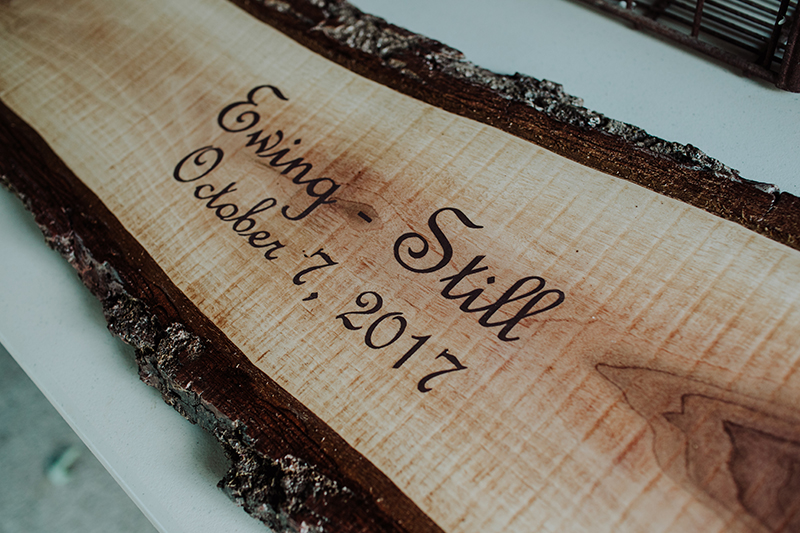 Ewing - Still
October 7, 2017